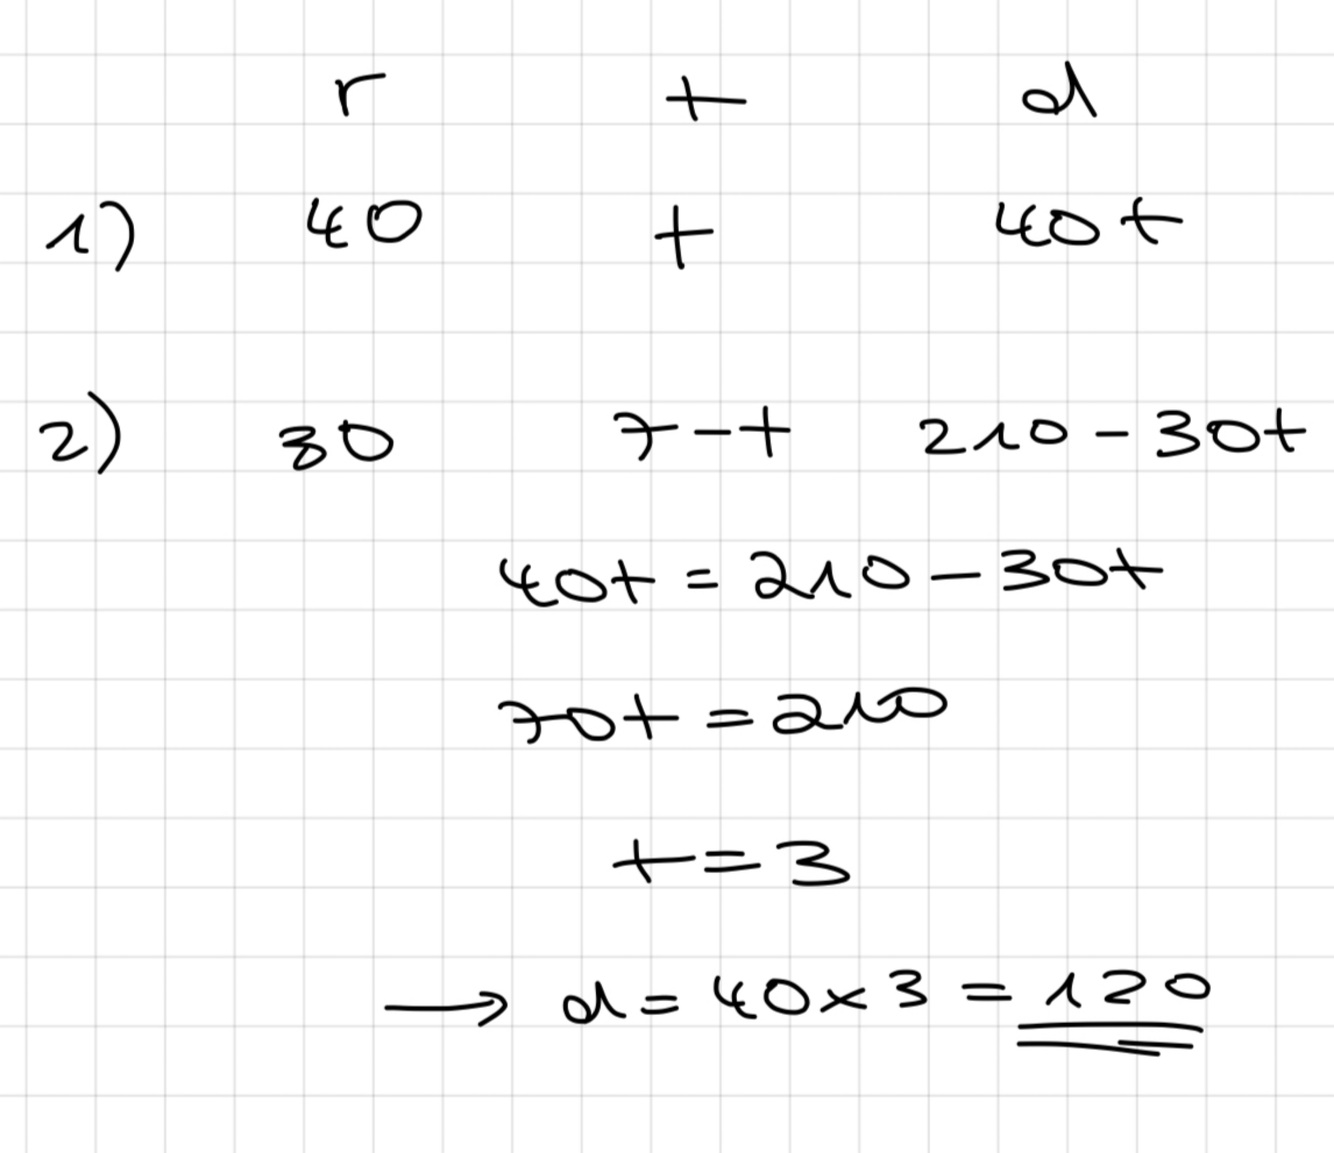 r t d
1) 40 t 40t
2) 30 7-t 210-30t
40t = 210-30t
70t = 210
t = 3
→ d = 40 x 3 = 120